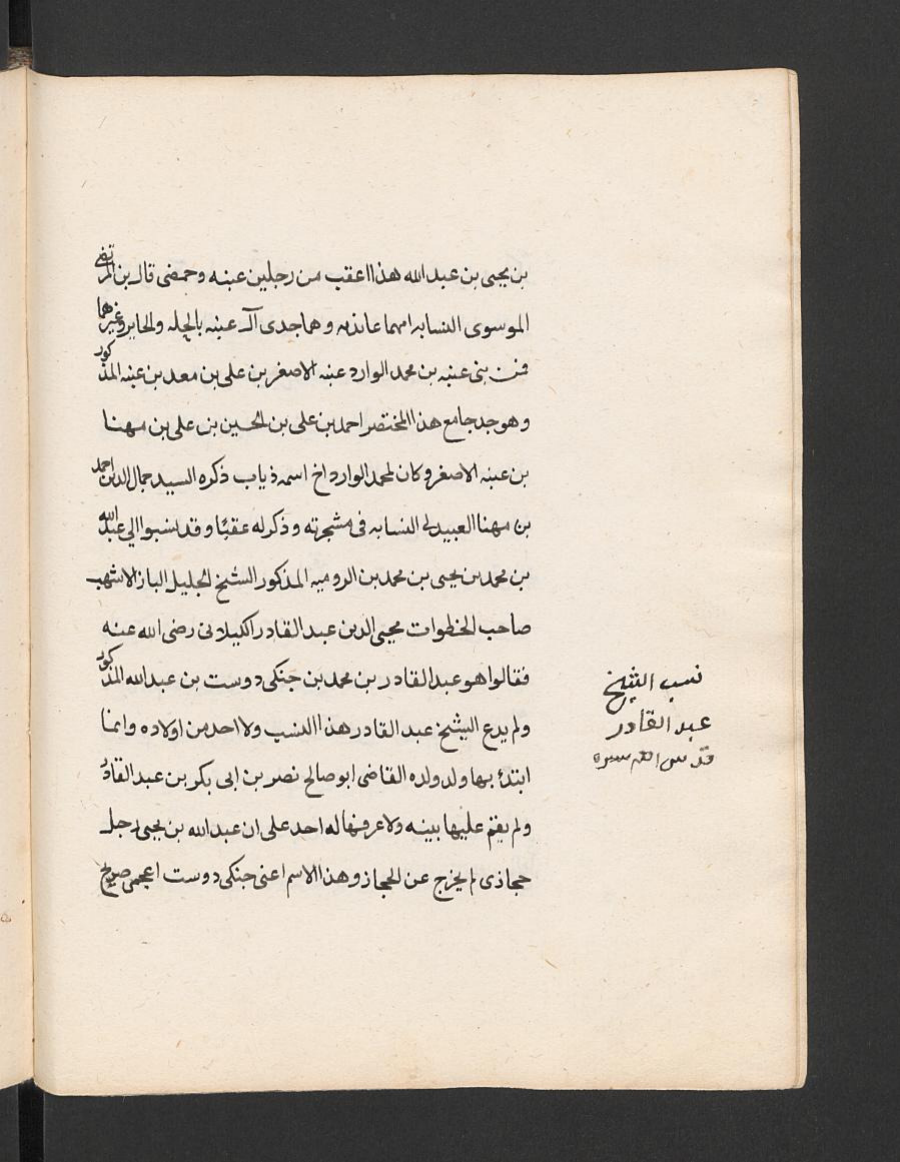 بن يحيى بن عبد الله هذا اعقب من رجلين عنبه وحمضى قال بن المرتضى
الموسوى النسابه انهما عاندىه وهما جدى آل عنبه بالحله والحاير وغيرهما
فمن بنى عنبه بن محمد الوارد عنبه الاصغر بن على بن معد بن عنبه المذكور
وهو جد جامع هذا المختصر احمد بن على بن الحسين بن على بن مهنا
بن عنبه الاصغر وكان لمحمد الوارد اخ اسمه ذياب ذكره السيد جمال الدين احمد
بن مهنا العبيدلى النسابه فى مشجرته وذكر له عقبًا وقد نسبوا الي عبد الله
بن محمد بن يحيى بن محمد بن الروميه المذكور الشيخ الجليل الباز الاشهب
صاحب الخطوات محيى الدين عبد القادر الكيلانى رضى الله عنه
فقالوا هو عبد القادر بن محمد بن جنكى دوست بن عبد الله المذكور
ولم يدع الشيخ عبد القادر هذا النسب ولا احد من اولاده وانما
ابتدئ بها ولد ولده القاضى ابو صالح نصر بن ابى بكر بن عبد القادر
ولم يقم عليها بينه ولا عرفها له احد على ان عبد الله بن يحيى رجل
حجازى لم يخرج عن الحجاز وهذا الاسم اعنى جنكى دوست اعجمى صريح
نسب الشيخ
عبد القادر
قدس الله سره